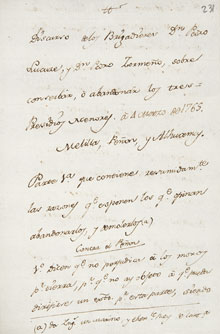 23
Discurso de los Brigadieres Dn. Pedro
Lucuze, y Dn. Pedro Zermeño, sobre
conserbar, ó abandonar los tres
Presidios Menores, de 4 Marzo de 1765.
Melilla, Peñon, y Alhucemas,
Parte 1ª que contiene resumidamte.
las razones qe. exponen los qe. opinan
abandonarlos, y demolerlos (a)
Contra el Peñon
1º dicen qe. no perjudica á los moros
pr. tierra, pr. qe. no ay objeto á qe. puedan
dirigirse un exto. pr. esta parte, siendo
(a)